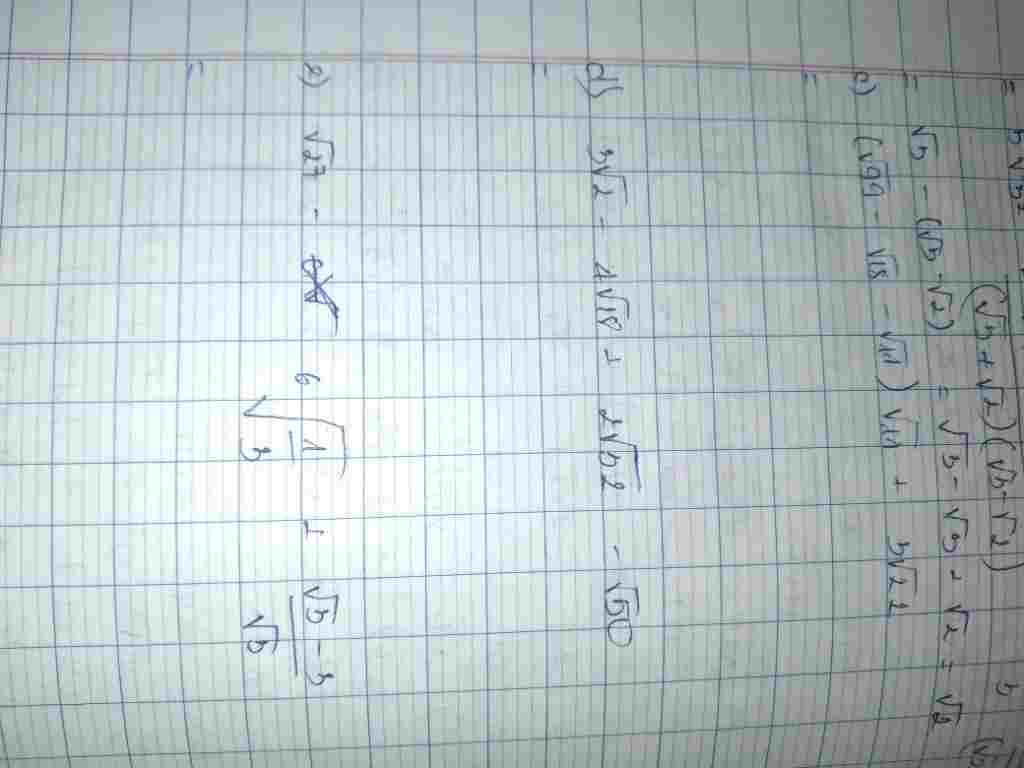 = √3 - (√3 - √2) = √3 - √3 + √2 = √2
c) (√99 - √18 - √11) √11 + 3√22
=
d) 3√2 - 4√18 + 2√32 - √50
=
e) √27 - 6√(1/3) + (√3 - 3)/√3
=